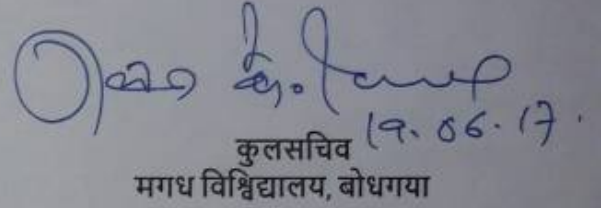 19.06.17.
कुलसचिव
मगध विश्विद्यालय, बोधगया